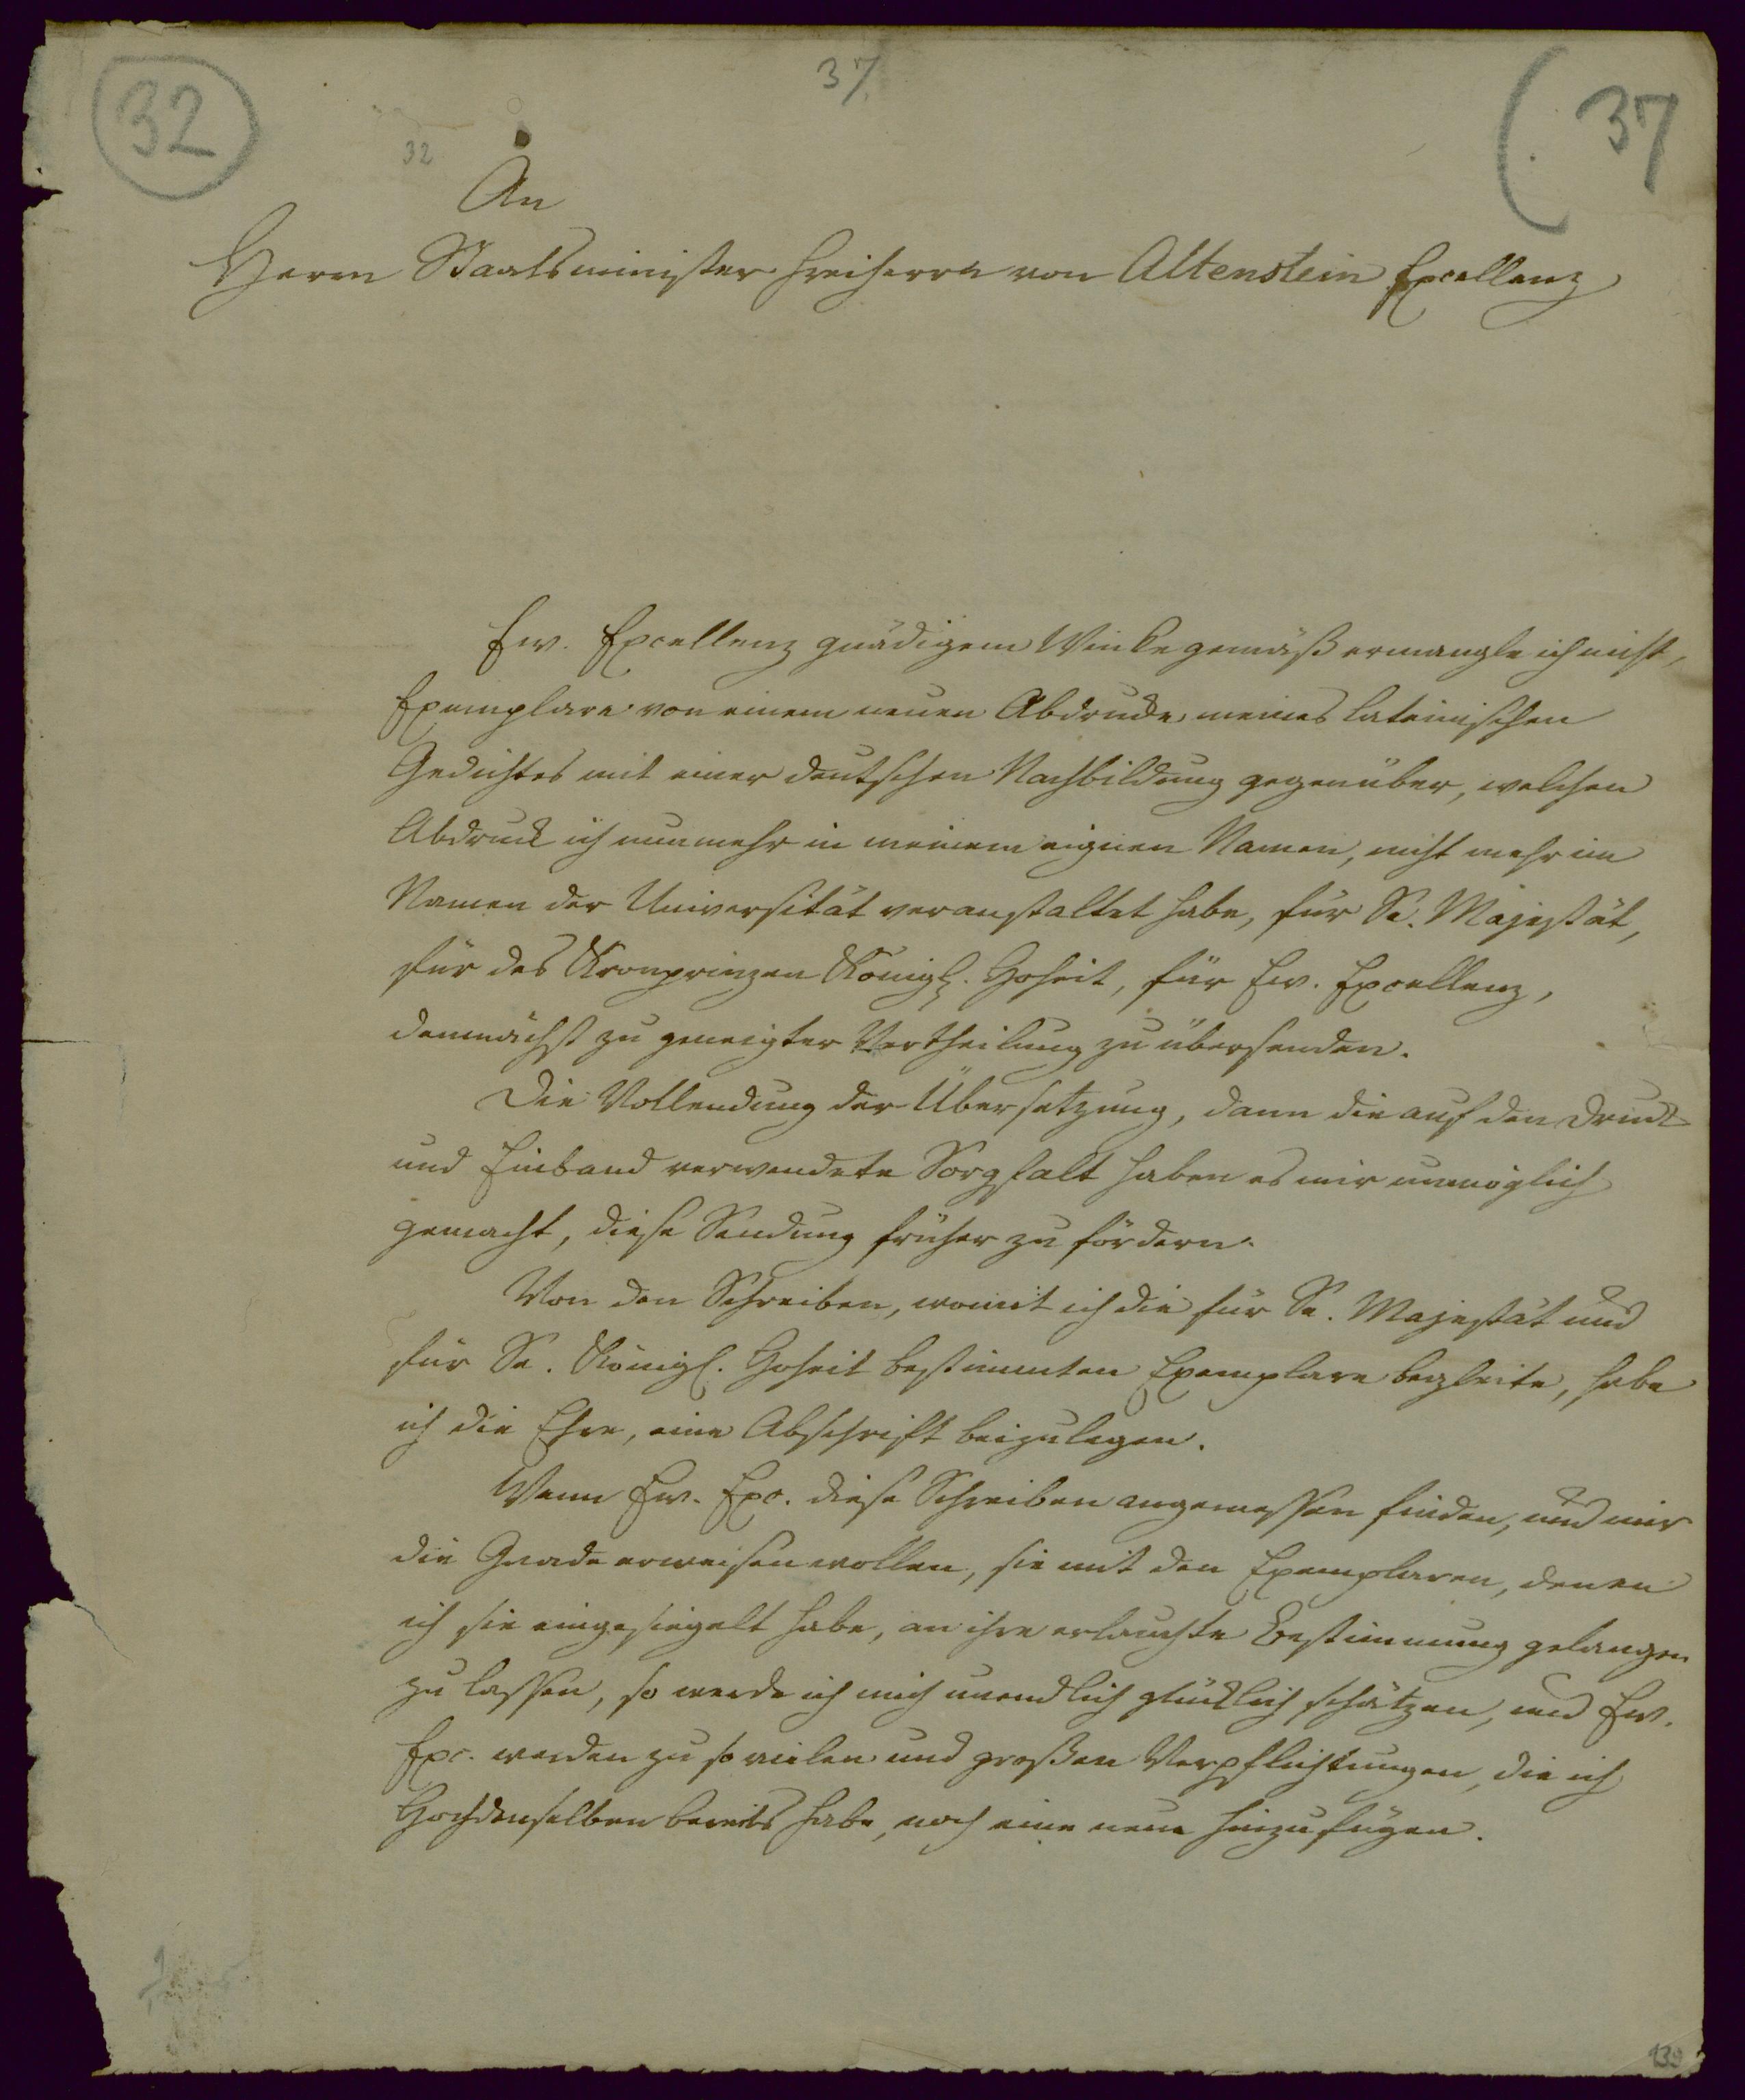 32
37
( 37
32
An
Herrn Staatsminister Freiherrn von Altenstein Excellenz
Ew. Excellenz gnädigem Winke gemäß ermangle ich nicht,
Exemplare von einem neuen Abdrucke meines lateinischen
Gedichtes mit einer deutschen Nachbildung gegenüber, welchen
Abdruck ich nunmehr in meinem eignen Namen, nicht mehr im
Namen der Universität veranstaltet habe, für Se. Majestät,
für des Kronprinzen Königl. Hoheit, für Ew. Excellenz,
demnächst zu geneigter Vertheilung zu übersenden.
Die Vollendung der Übersetzung, dann die auf den Druck
und Einband verwendete Sorgfalt haben es mir unmöglich
gemacht, diese Sendung früher zu fördern.
Von den Schreiben, womit ich die für Se. Majestät und
für Se. Königl. Hoheit bestimmten Exemplare begleite, habe
ich die Ehre, eine Abschrift beizulegen.
Wenn Ew. Exc. diese Schreiben angemessen finden, und mir
die Gnade erweisen wollen, sie mit den Exemplaren, denen
ich sie eingesiegelt habe, an ihre erlauchte Bestimmung gelangen
zu lassen, so werde ich mich unendlich glücklich schätzen, und Ew.
Exc. werden zu so vielen und großen Verpflichtungen, die ich
Hochdenselben bereits habe, noch eine neue hinzufügen.
139